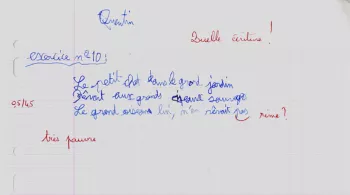 Quentin
Quelle écriture !
exercice n° 10 :
Le petit chat dans le grand jardin
Rêvait aux grands espaces sauvages
Le grand oiseau lui, n'en rêvait pas rime ?
très pauvre